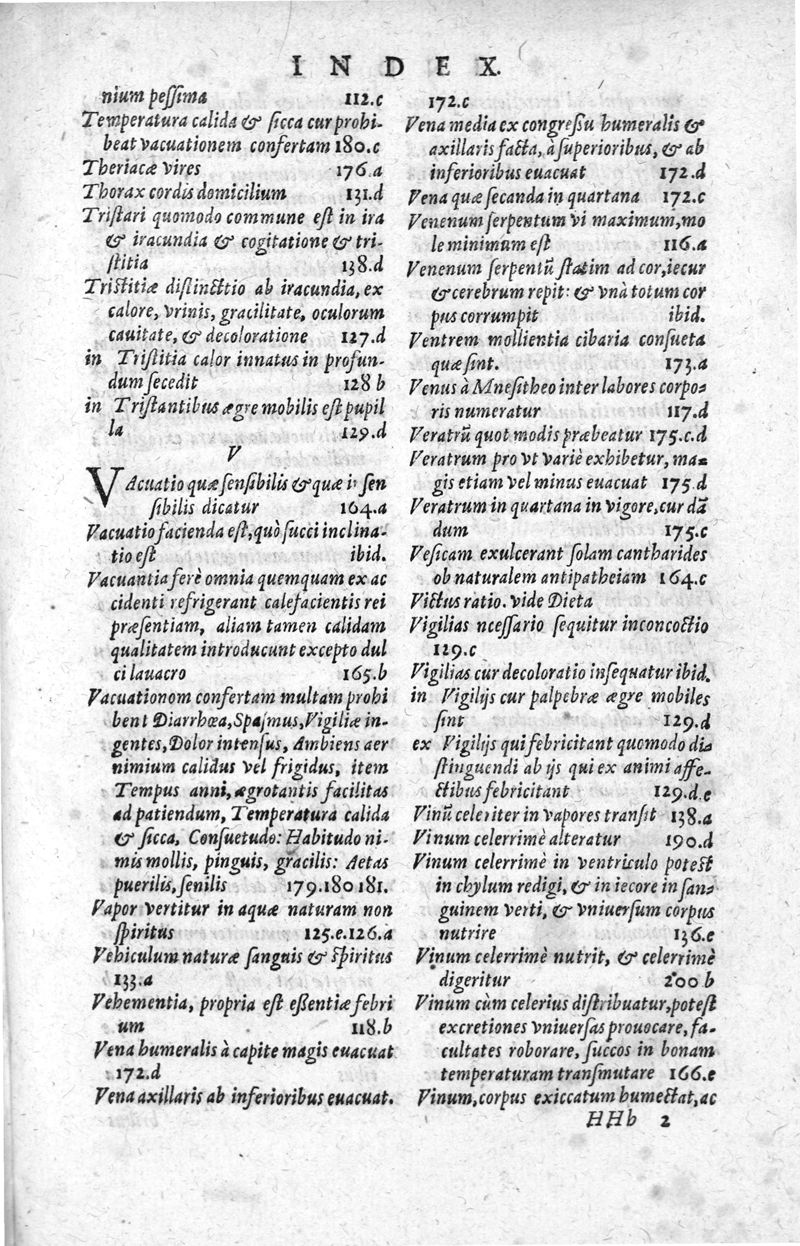 INDEX.
nium peſſima 112.c
Temperatura calida & ſicca cur prohi-
beat vacuationem confertam 180.c
Theriacæ vires 176.a
Thorax cordis domicilium 131.d
Triſtari quomodo commune eſt in ira
& iracundia & cogitatione & tri-
ſtitia 138.d
Triſtitiæ diſtinctio ab iracundia, ex
calore, vrinis, gracilitate, oculorum
cauitate, & decoloratione 127.d
in Triſtitia calor innatus in profun-
dum ſecedit 128 b
in Triſtantibus ægre mobilis eſt pupil
la 129.d
V
VAcuatio quæ ſenſibilis & quæ iſen
ſibilis dicatur 164.a
Vacuatio facienda eſt, quò ſucci inclina-
tio eſt ibid.
Vacuantia ferè omnia quemquam ex ac
cidenti refrigerant calefacientis rei
præſentiam, aliam tamen calidam
qualitatem introducunt excepto dul
ci lauacro 165.b
Vacuationom confertam multam prohi
bent Diarrhœa, Spaſmus, Vigiliæ in-
gentes, Dolor intenſus, Ambiens aer
nimium calidus vel frigidus, item
Tempus anni, ægrotantis facilitas
ad patiendum, Temperatura calida
& ſicca, Conſuetudo: Habitudo ni-
mis mollis, pinguis, gracilis: Aetas
puerilis, ſenilis 179.180 181.
Vapor vertitur in aquæ naturam non
ſpiritus 125.e.126.a
Vehiculum naturæ ſanguis & ſpiritus
133.a
Vehementia, propria eſt eſſentiæ febri
um 118.b
Vena humeralis à capite magis euacuat
172.d
Vena axillaris ab inferioribus euacuat.
172.c
Vena media ex congreſſu humeralis &
axillaris facta, à ſuperioribus, & ab
inferioribus euacuat 172.d
Vena quæ ſecanda in quartana 172.c
Venenum ſerpentum vi maximum, mo
le minimum eſt 116.a
Venenum ſerpentũ ſtatim ad cor, iecur
& cerebrum repit: & vnà totum cor
pus corrumpit ibid.
Ventrem mollientia cibaria conſueta
quæ ſint. 173.a
Venus à Mneſitheo inter labores corpo-
ris numeratur 117.d
Veratrũ quot modis præbeatur 175.c.d
Veratrum pro vt variè exhibetur, ma-
gis etiam vel minus euacuat 175.d
Veratrum in quartana in vigore, cur dã
dum 175.c
Veſicam exulcerant ſolam cantharides
ob naturalem antipatheiam 164.c
Victus ratio. vide Dieta
Vigilias nceſſario ſequitur inconcoctio
129.c
Vigilias cur decoloratio inſequatur ibid.
in Vigilijs cur palpebræ ægre mobiles
ſint 129.d
ex Vigilijs qui febricitant quomodo di
ſtinguendi ab ijs qui ex animi affe-
ctibus febricitant 129.d.e
Vinũ celeriter in vapores tranſit 138.a
Vinum celerrimè alteratur 190.d
Vinum celerrimè in ventriculo poteſt
in chylum redigi, & in iecore in ſan-
guinem verti, & vniuerſum corpus
nutrire 136.e
Vinum celerrimè nutrit, & celerrimè
digeritur 200 b
Vinum cùm celerius diſtribuatur, poteſt
excretiones vniuerſas prouocare, fa-
cultates roborare, ſuccos in bonam
temperaturam tranſmutare 166.e
Vinum, corpus exiccatum humectat, ac
HHh 2